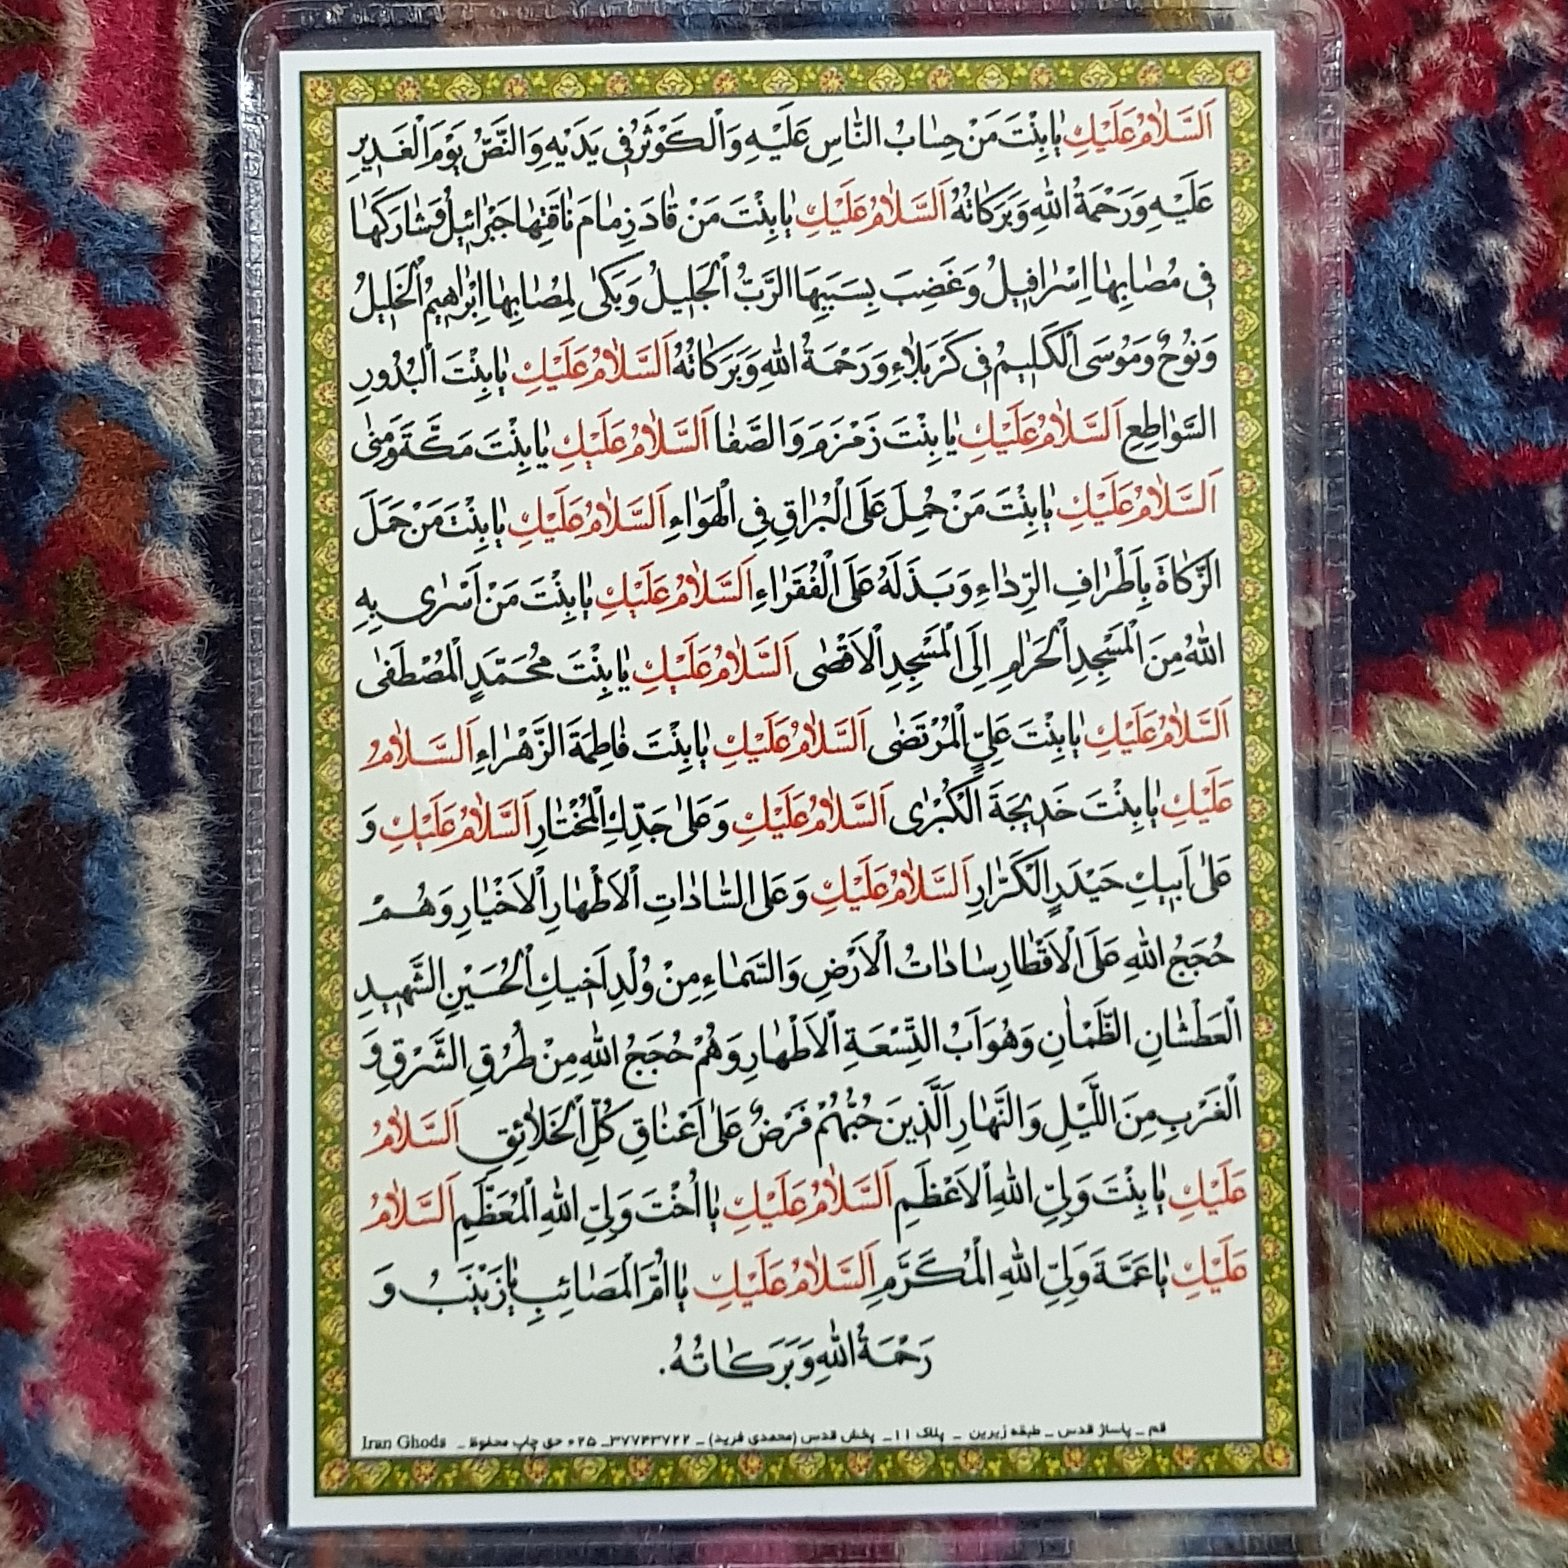 اَلسَّلامُ عَلَيْكِ يا بِنْتَ مَنْ حِسابُ النّاسِ عَلَيْهِ وَالْكَوْثَرُ فى يَدَيْهِ وَالنَّصُّ يَوْمَ الْغَديرِ
عَلَيْهِ وَرَحْمَةُ اللهِ وَبَرَكاتُهُ اَلسَّلامُ عَلَيْكِ يا بِنْتَ مَنْ قادَ زِمامَ ناقَتِها جَبْرائيلُ وَشارَكَها
فى مُصابِها اِسْرافيلُ وَغَضِبَ بِسَبَبِهَا الرَّبُّ الْجَليلُ وَبَكى لِمُصابِها اِبْراهيمُ الْخَليلُ
وَنُوحٌ وَمُوسَى الْكَليمُ فى كَرْبَلاءِ وَرَحْمَةُ اللهِ وَبَرَكاتُهُ اَلسَّلامُ عَلَيْكِ يا بِنْتَ الْبُدُورِ
السَّواطِعِ اَلسَّلامُ عَلَيْكِ يا بِنْتَ زَمْزَمَ وَالصَّفا اَلسَّلامُ عَلَيْكِ يا بِنْتَ مَكَّةَ وَمِنى
اَلسَّلامُ عَلَيْكِ يا بِنْتَ مَنْ حُمِلَ عَلَى الْبُراقِ فِى الْهَواءِ اَلسَّلامُ عَلَيْكِ يا بِنْتَ مَنْ حَمَلَ
الزَّكاةَ بِاَطْرافِ الرِّداءِ وَبَذَلَهُ عَلَى الْفُقَراءِ اَلسَّلامُ عَلَيْكِ يا بِنْتَ مَنْ اَسْرى بِهِ
اللهُ مِنَ الْمَسْجِدِ الْحَرامِ اِلَى الْمَسْجِدِ الْاَقْصى اَلسَّلامُ عَلَيْكِ يا بِنْتَ مُحَمَّدٍ الْمُصْطَفى
اَلسَّلامُ عَلَيْكِ يا بِنْتَ عَلِىٍّ الْمُرْتَضى اَلسَّلامُ عَلَيْكِ يا بِنْتَ فاطِمَةَ الزَّهْراءِ اَلسَّلامُ
عَلَيْكِ يا بِنْتَ خَديجَةَ الْكُبْرى اَلسَّلامُ عَلَيْكِ وَعَلى جَدِّكِ الْمُخْتارِ اَلسَّلامُ عَلَيْكِ وَ
عَلى اَبيكِ حَيْدَرٍ الْكَرّارِ اَلسَّلامُ عَلَيْكِ وَعَلَى السّاداتِ الْاَطْهارِ الْاَخْيارِ وَهُمْ
حُجَجُ اللهِ عَلَى الْاَقْطارِ ساداتُ الْاَرْضِ وَالسَّماءِ مِنْ وُلْدِ اَخيكِ الْحُسَيْنِ الشَّهيدِ
الْعَطْشانِ الظَّمْانِ وَهُوَ اَبُ التِّسْعَةِ الْاَطْهارِ وَهُمْ حُجَجُ اللهِ مِنْ طُرُقِ الشَّرْقِ وَ
الْغَرْبِ مِنَ اللَّيْلِ وَالنَّهارِ الَّذينَ حُبُّهُمْ فَرْضٌ عَلى اَعْناقِ كُلِّ الْخَلائِقِ اَلسَّلامُ
عَلَيْكِ يا بِنْتَ وَلِىِّ اللهِ الْاَعْظَمِ اَلسَّلامُ عَلَيْكِ يا اُخْتَ وَلِىِّ اللهِ الْمُعَظَّمِ اَلسَّلامُ
عَلَيْكِ يا عَمَّةَ وَلِىِّ اللهِ الْمُكَرَّمِ اَلسَّلامُ عَلَيْكِ يا اُمَّ الْمَصائِبِ يا زَيْنَبُ وَ
رَحْمَةُ اللهِ وَبَرَكاتُهُ.
قم ـ پاساژ قدس ـ طبقه زیرین ـ پلاک ۱۱ ـ پخش قدس (محمدی فرید) ـ ۳۷۷۴۳۷۴۴ ـ ۰۲۵ حق چاپ محفوظ ـ Iran Ghods